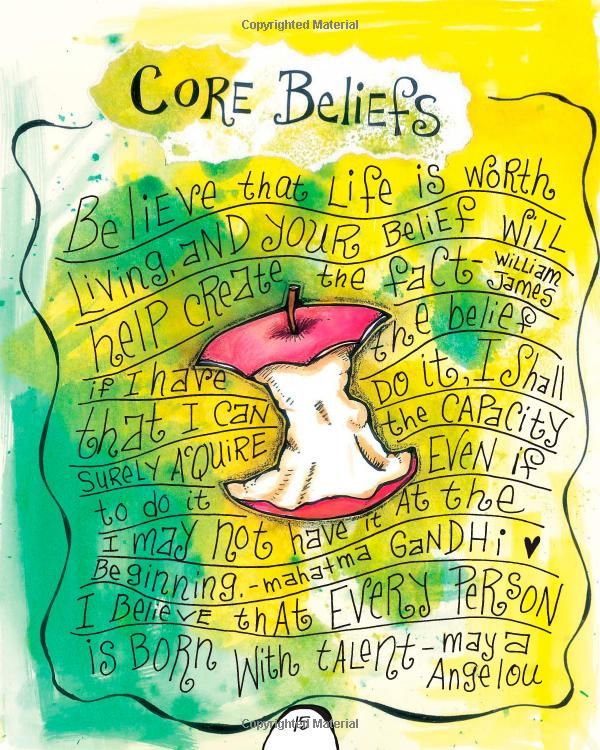 Copyrighted Material
CORE BeliEfs
BeliEve that Life is WoRth
Living, aND YOUR BeliEF WiLL
help CREate the fact- William
James
if I have the belief
that I CAN DO it, I Shall
SURELY AQUIRE the CAPaCity
to do it EVEN if
I may Not have it At the
Beginning. -mahatma GaNDHi ♥
I BeliEVE thAt EVERY PeRSON
is BORN With tALENt- maya
Angelou
15
Copyrighted Material